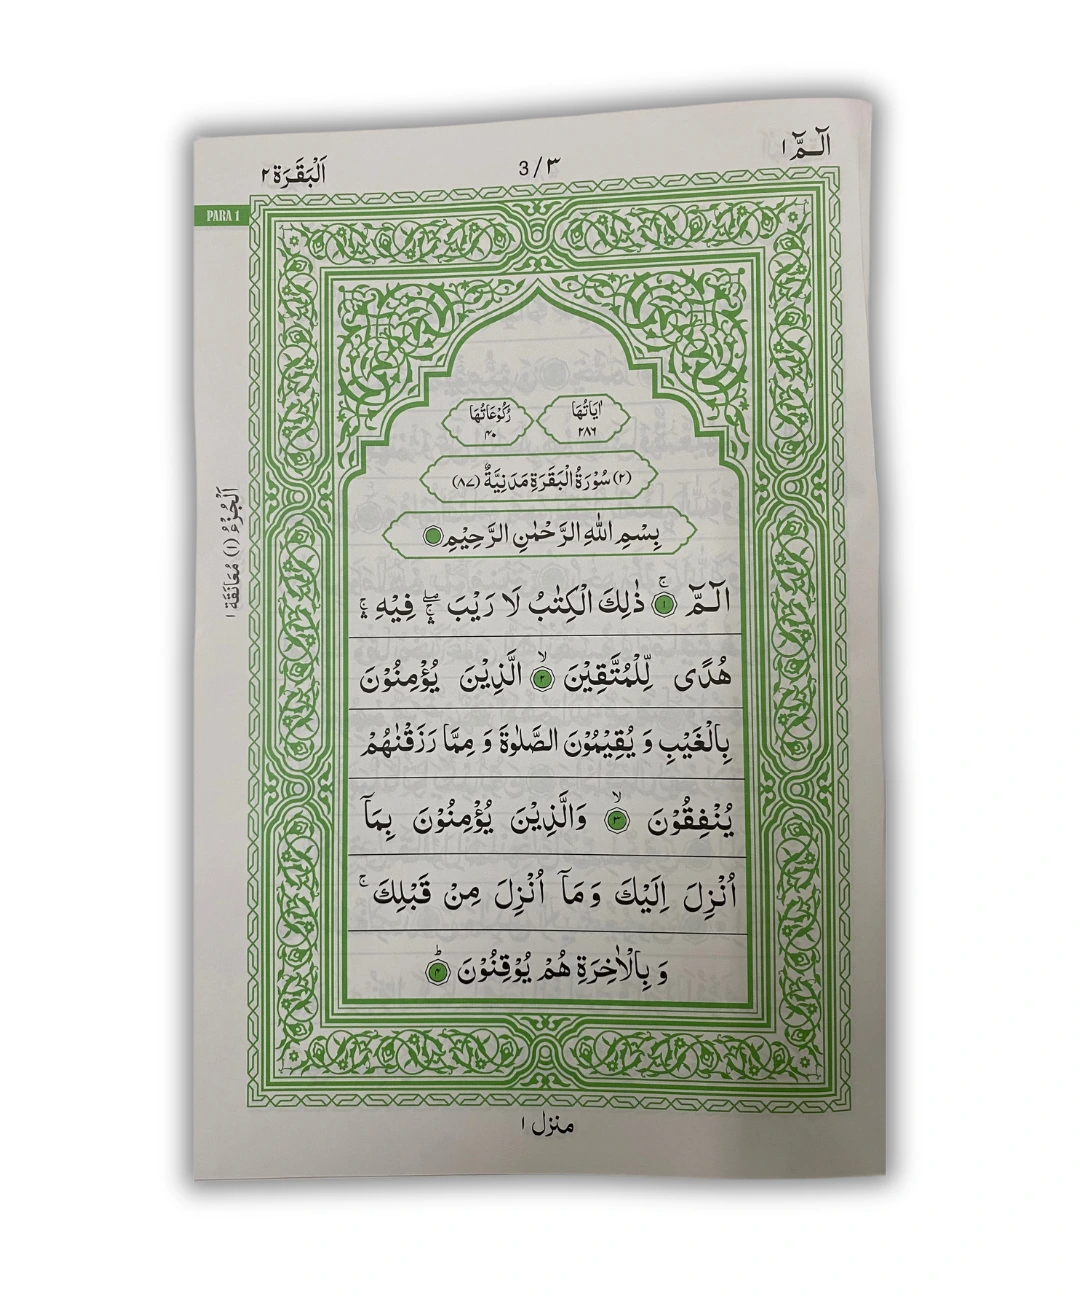 الٓـمّٓ ۱
3/۳
اَلْبَقَرَة ۲
PARA 1
اٰيَاتُهَا ۲۸۶
رُكُوْعَاتُهَا ۴۰
(۲) سُوْرَةُ الْبَقَرَةِ مَدَنِيَّةٌ (۸۷)
بِسْمِ اللّٰهِ الرَّحْمٰنِ الرَّحِيْمِ
الٓـمّٓ ۚ ۱ ذٰلِكَ الْكِتٰبُ لَا رَيْبَ ۛۖ فِيْهِ ۛۚ
هُدًى لِّلْمُتَّقِيْنَ ۙ ۲ الَّذِيْنَ يُؤْمِنُوْنَ
بِالْغَيْبِ وَ يُقِيْمُوْنَ الصَّلٰوةَ وَ مِمَّا رَزَقْنٰهُمْ
يُنْفِقُوْنَ ۙ ۳ وَالَّذِيْنَ يُؤْمِنُوْنَ بِمَآ
اُنْزِلَ اِلَيْكَ وَ مَآ اُنْزِلَ مِنْ قَبْلِكَ ۚ
وَ بِالْاٰخِرَةِ هُمْ يُوْقِنُوْنَ ؕ ۴
اَلْجُزْءُ (۱) مُعَانَقَة ۱
منزل ۱